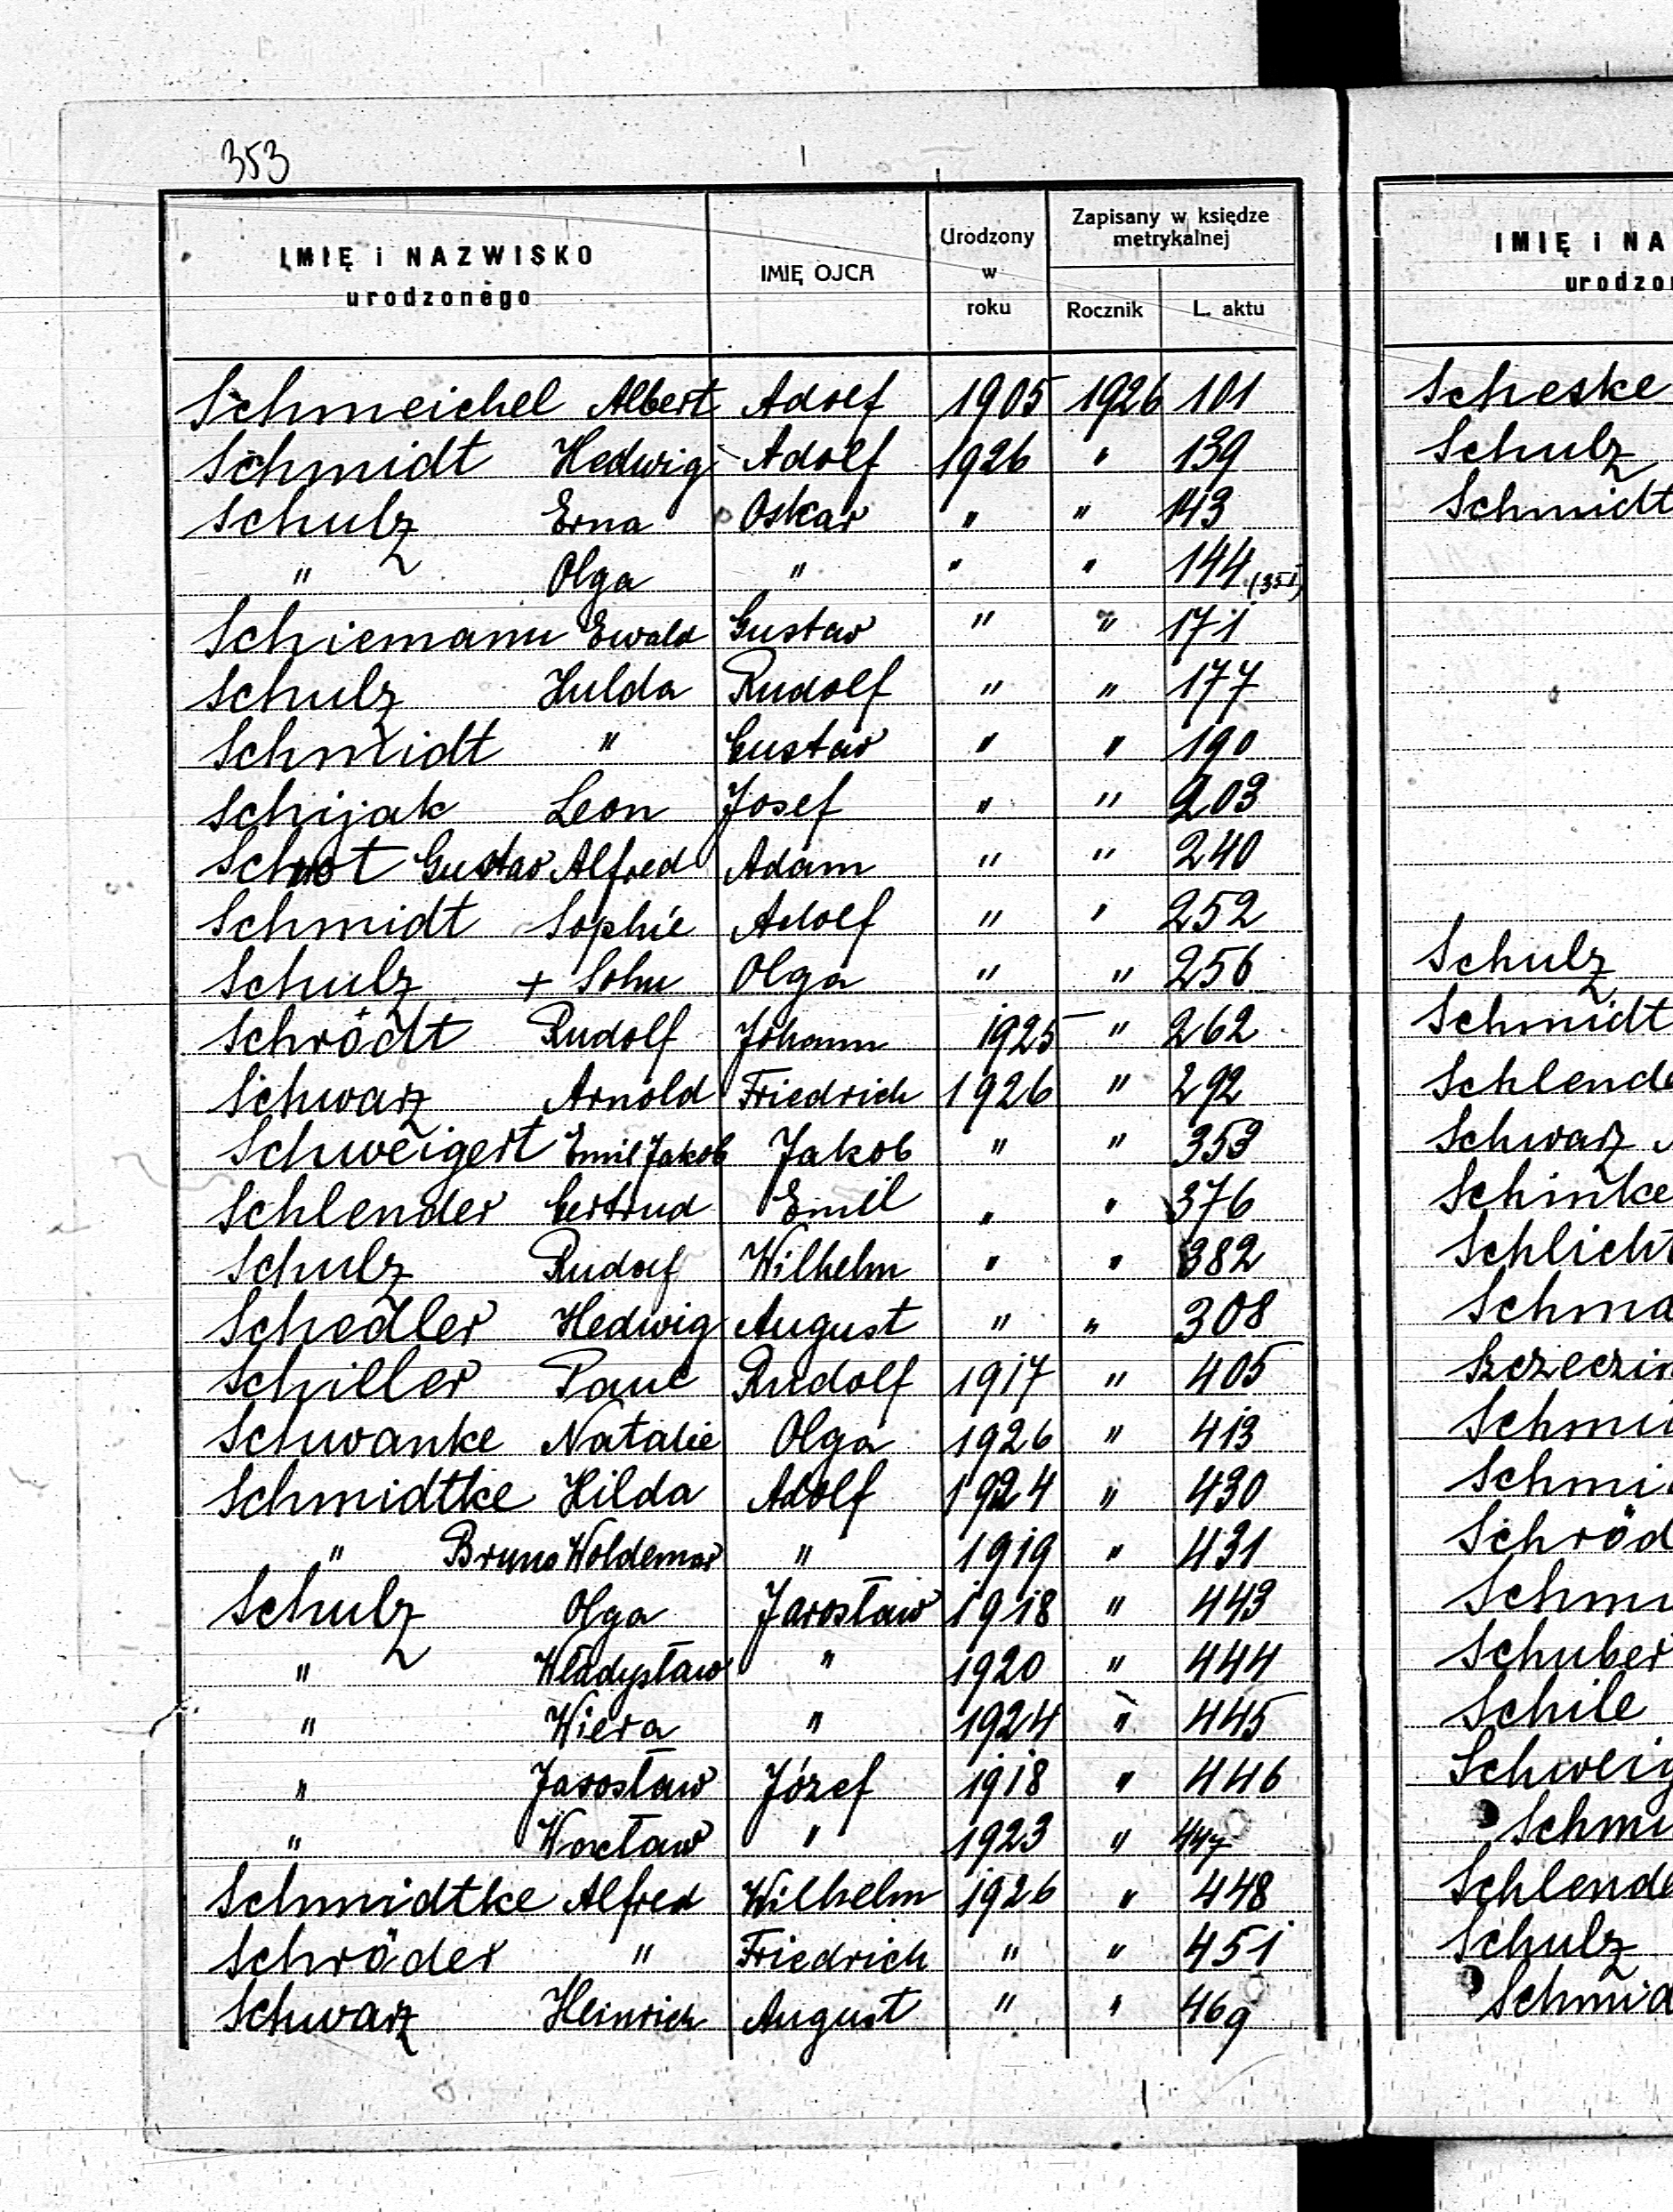 353
IMIĘ i NAZWISKO urodzonego IMIĘ OJCA Urodzony w roku Zapisany w księdze metrykalnej Rocznik L. aktu
Schmeichel Albert Adolf 1905 1926 101
Schmidt Hedwig Adolf 1926 " 139
Schulz Erna Oskar " " 143
" Olga " " " 144 (351)
Schiemann Ewald Gustav " " 171
Schulz Hulda Rudolf " " 177
Schmidt " Gustav " " 190
Schijak Leon Josef " " 203
Schrot Gustav Alfred Adam " " 240
Schmidt Sophie Adolf " " 252
Schulz + Sohn Olga " " 256
Schrödt Rudolf Johann 1925 " 262
Schwarz Arnold Friedrich 1926 " 292
Schweigert Emil Jakob Jakob " " 353
Schlender Gertrud Emil " " 376
Schulz Rudolf Wilhelm " " 382
Schedler Hedwig August " " 308
Schiller Paul Rudolf 1917 " 405
Schwanke Natalie Olga 1926 " 413
Schmidtke Hilda Adolf 1924 " 430
" Bruno Woldemar " 1919 " 431
Schulz Olga Jarosław 1918 " 443
" Władysław " 1920 " 444
" Wiera " 1924 " 445
" Jarosław Józef 1918 " 446
" Wacław " 1923 " 447
Schmidtke Alfred Wilhelm 1926 " 448
Schröder " Friedrich " " 451
Schwarz Heinrich August " " 469
IMIĘ i NA
urodzo
Scheske
Schulz
Schmidt
Schulz
Schmidt
Schlende
Schwarz
Schinke
Schlicht
Schma
Szczeczin
Schmi
Schmi
Schröd
Schmi
Schuber
Schile
Schweig
Schmi
Schlende
Schulz
Schmid